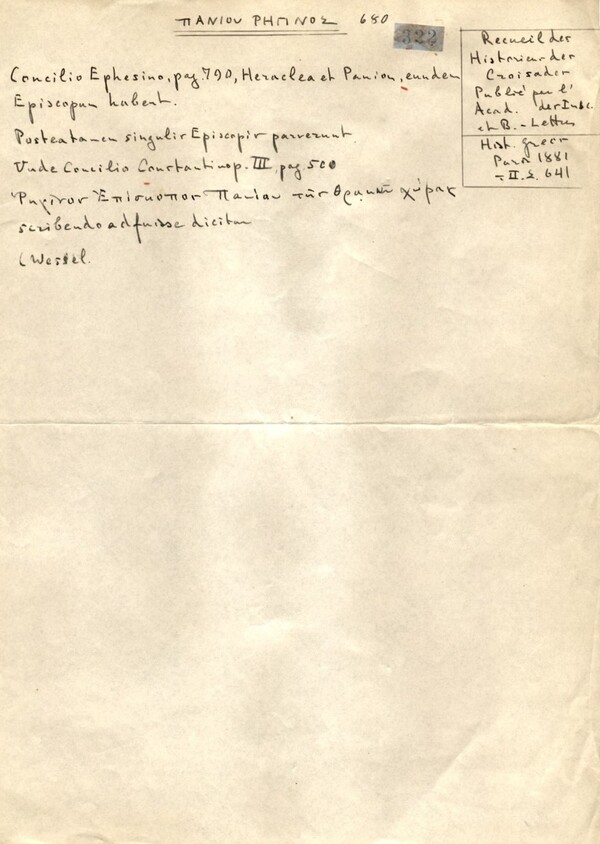 ΠΑΝΙΟΥ ΡΗΓΙΝΟΣ 680
322
Recueil des
Historiens des
Croisades
Publié par l'
Acad. des Insc.
et B.-Lettres
Hist. grecs
Paris 1881
τ II. Σ. 641
Concilio Ephesino, pag. 790, Heraclea et Panion, eundem
Episcopum habent.
Postea tamen singulis Episcopis paruerunt
Unde Concilio Constantinop. III, pag. 500
Ρηγῖνος Ἐπίσκοπος Πανίου τῆς Θρᾳκῶν χώρας
scribendo adfuisse dicitur
(Wessel.